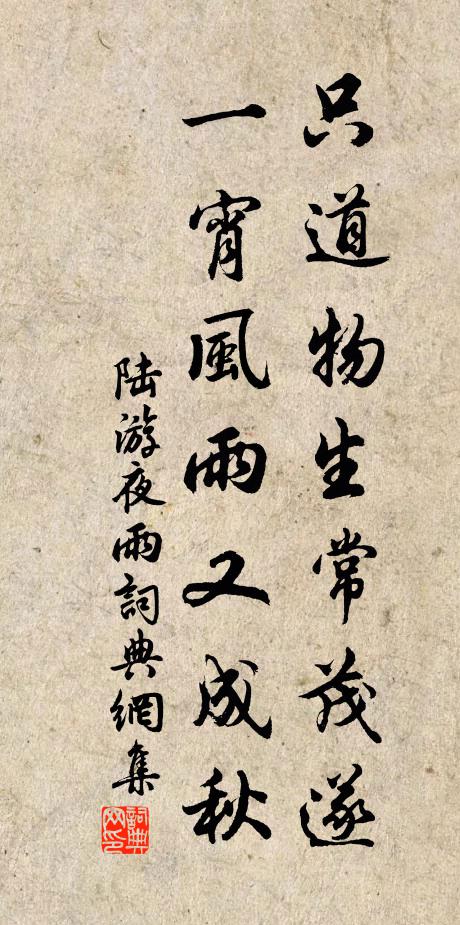 只道物生常茂遂
一宵風雨又成秋
陸游夜雨詞典網集
詞典網印